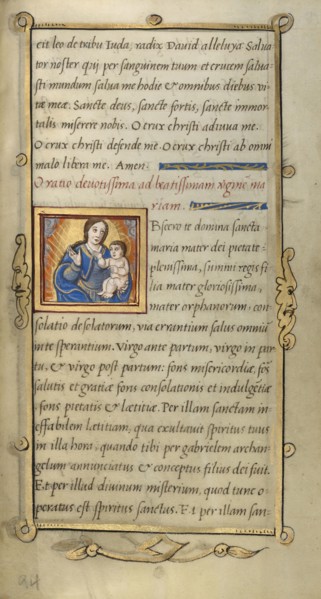 cit leo de tribu Iuda, radix David alleluya Salva
tor noster qui per sanguinem tuum et crucem salva-
sti mundum salva me hodie & omnibus diebus vi-
tæ meæ. Sancte deus, sancte fortis, sancte immor
talis miserere nobis. O crux christi adiuva me.
O crux christi defende me. O crux christi ab omni
malo libera me. Amen.
Oratio devotissima ad beatissimam virginē ma
riam.
Bsecro te domina sancta
maria mater dei pietate
plenissima, summi regis fi
lia mater gloriosissima,
mater orphanorum, con
solatio desolatorum, via errantium salus omniū
in te sperantium. Virgo ante partum, virgo in par
tu, & virgo post partum: fons misericordiæ, fōs
salutis et gratiæ fons consolationis et indulgētiæ
, fons pietatis & lætitiæ. Per illam sanctam in-
effabilem lætitiam, qua exultavit spiritus tuus
in illa hora, quando tibi per gabrielem archan
gelum annunciatus & conceptus filius dei fuit.
Et per illud divinum misterium, quod tunc o
peratus est spiritus sanctus. Et per illam san-
94